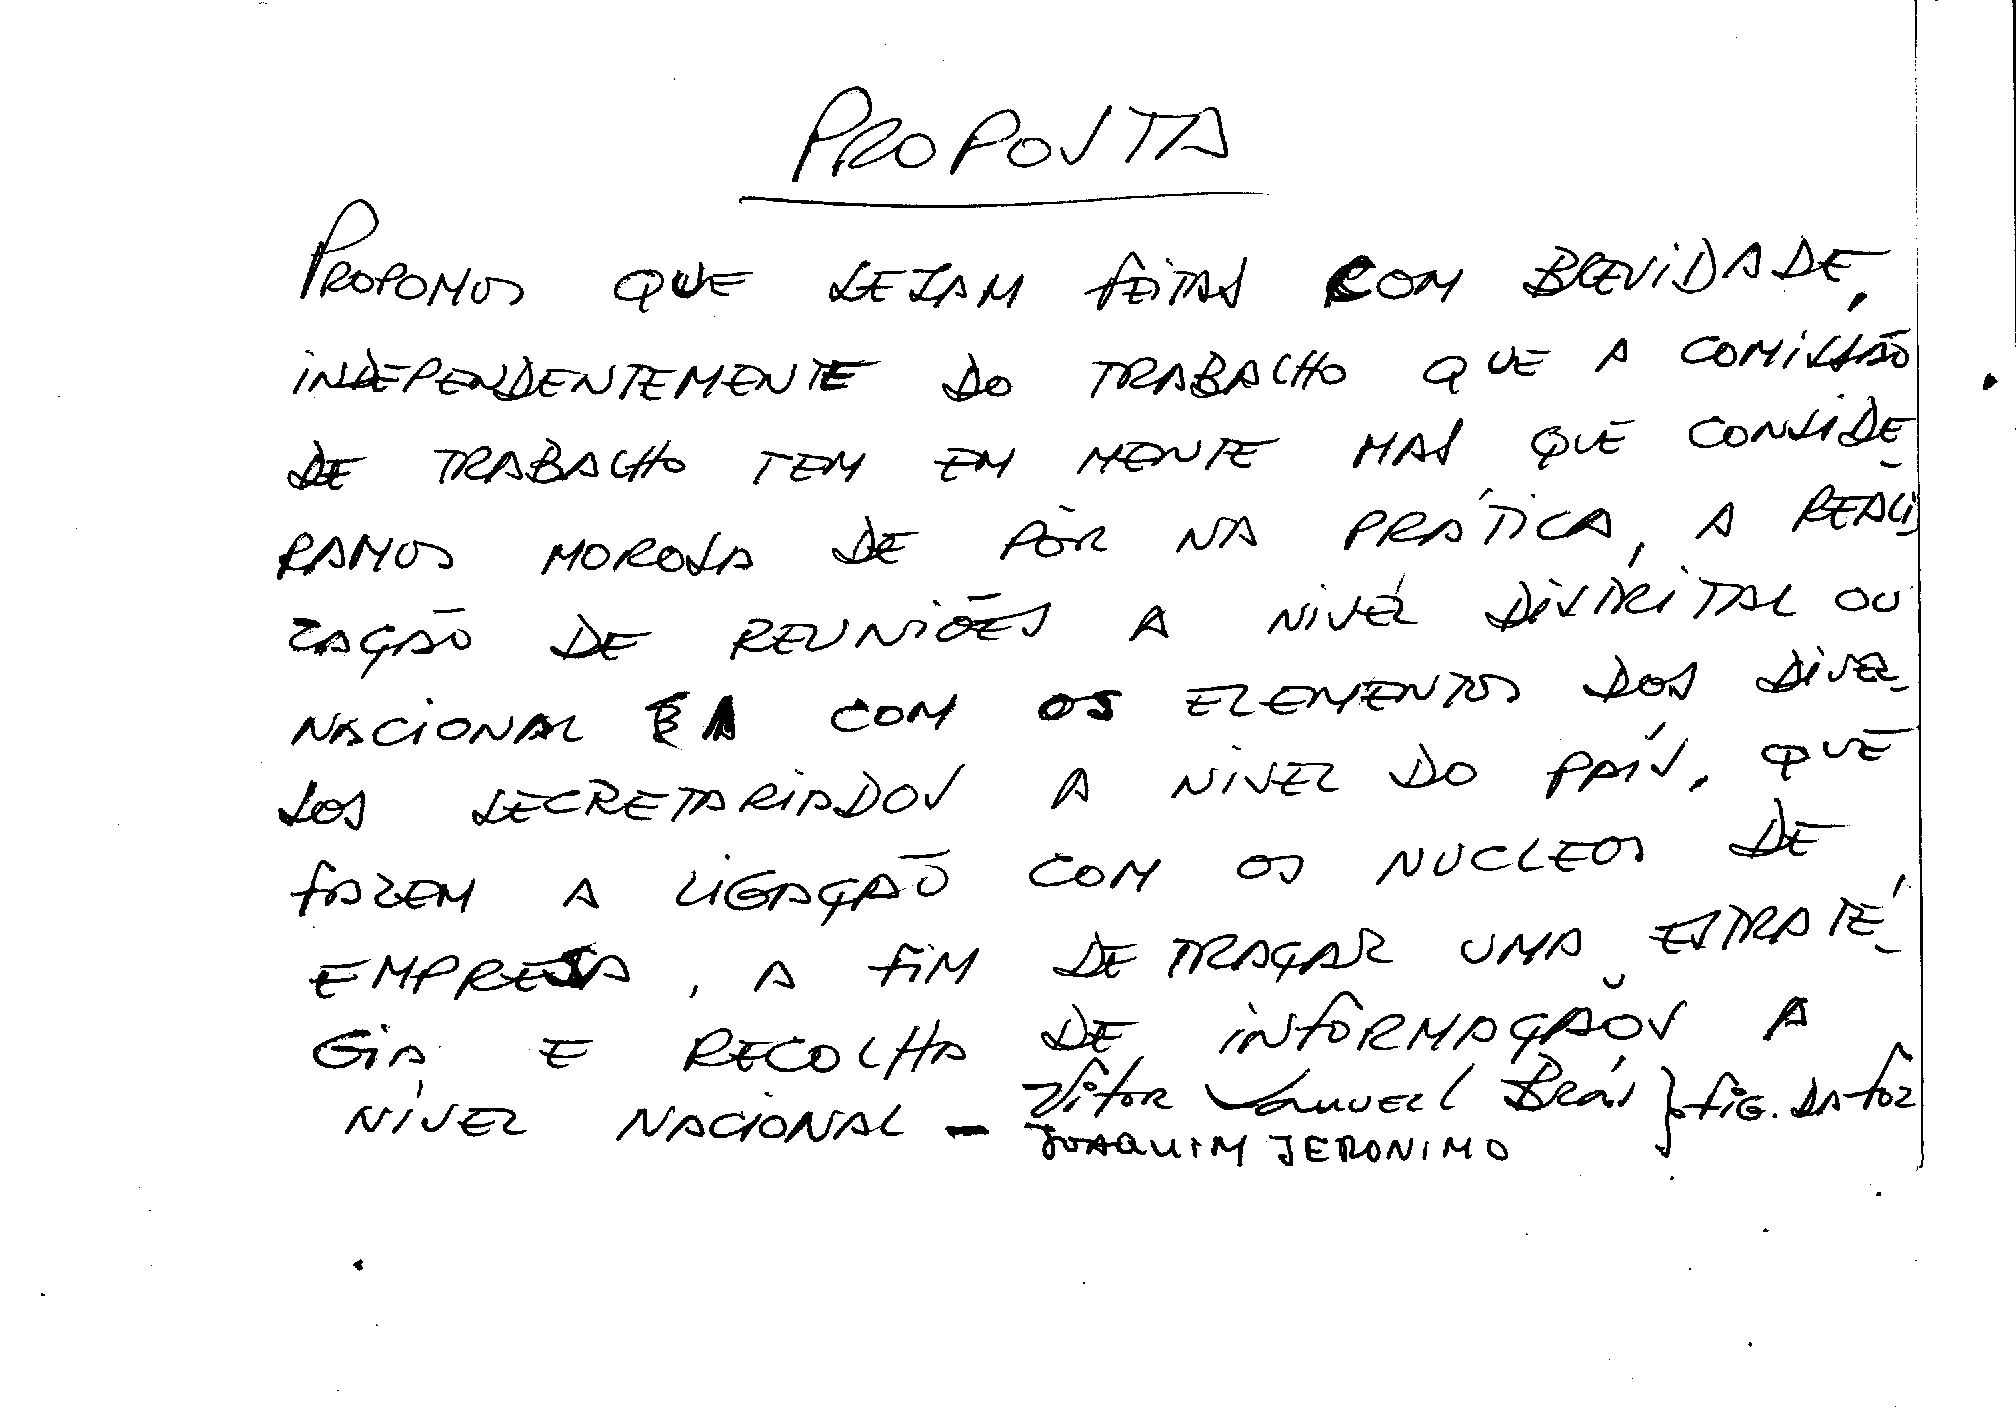 PROPOSTA
PROPOMOS QUE SEJAM FEITAS COM BREVIDADE,
INDEPENDENTEMENTE DO TRABALHO QUE A COMISSÃO
DE TRABALHO TEM EM MENTE MAS QUE CONSIDE-
RAMOS MOROSA DE PÔR NA PRÁTICA, A REALI
ZAÇÃO DE REUNIÕES A NIVEL DISTRITAL OU
NACIONAL COM OS ELEMENTOS DOS DIVER-
SOS SECRETARIADOS A NIVEL DO PAÍS, QUE
FAZEM A LIGAÇÃO COM OS NUCLEOS DE
EMPRESA, A FIM DE TRAÇAR UMA ESTRATÉ-
GIA E RECOLHA DE INFORMAÇÃOS A
NÍVEL NACIONAL - Vitor Manuel Brás } FIG. DA FOZ
JOAQUIM JERONIMO